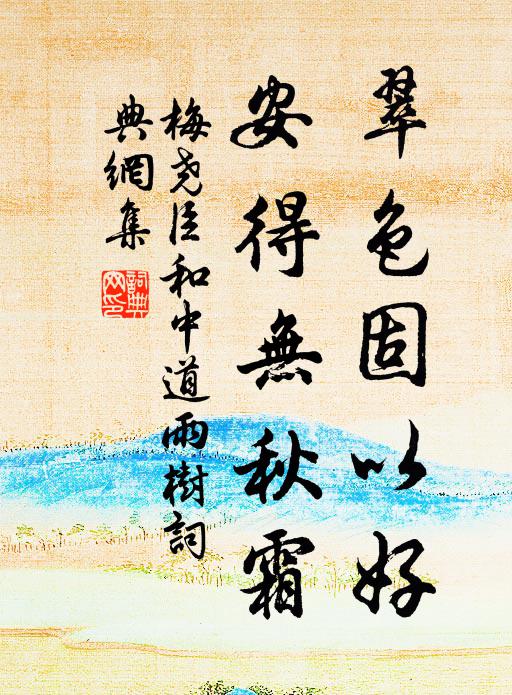 翠色固以好
安得無秋霜
梅尧臣和中道雨樹詞
典網集
詞典
网印